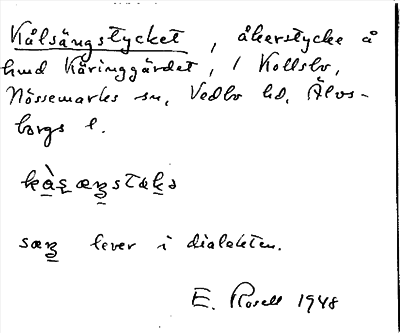 Kålsängstycket, åkerstycke å
hmd Käringgärdet, 1 Kollsbo,
Nössemarks sn, Vedbo hd, Älvs-
borgs l.
sæŋ lever i dialekten.
E. Rosell 1948